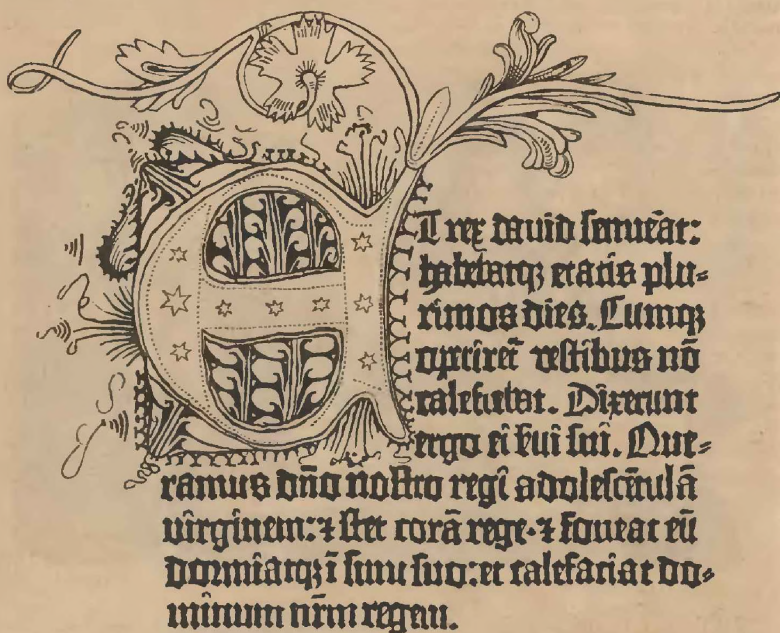 ET rex dauid senuēat:
habebatqꝫ etatis plu⸗
rimos dies. Cumqꝫ
operiret᷑ vestibus nō
calefiebat. Dixerunt
ergo ei ẜui sui. Que⸗
ramus dn̄o nostro regi adolescētulā
uirginem: ⁊ stet corā rege. ⁊ foueat eū
dormiatqꝫ ī sinu suo: et calefaciat do⸗
minum nr̄m regem.